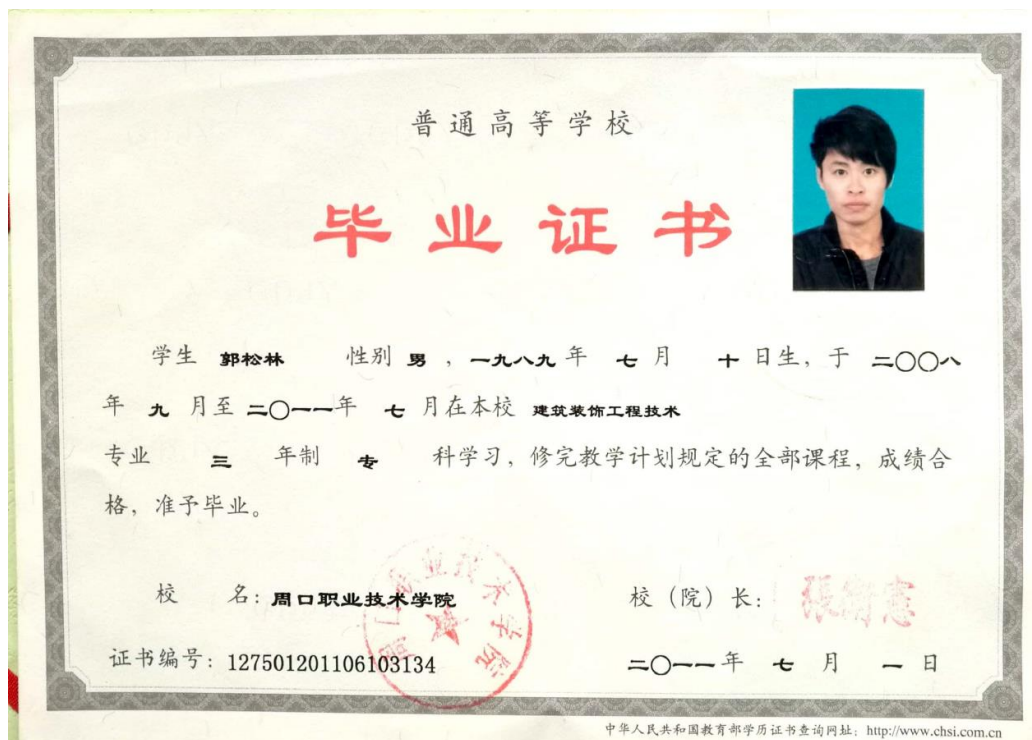 普通高等学校
毕业证书
学生 郭松林 性别 男 ，一九八九 年 七 月 十 日生，于 二〇〇八
年 九 月至 二〇一一年 七 月在本校 建筑装饰工程技术
专业 三 年制 专 科学习，修完教学计划规定的全部课程，成绩合
格，准予毕业。
校 名：周口职业技术学院
校（院）长：
周口职业技术学院
证书编号：127501201106103134
二〇一一年 七 月 一 日
中华人民共和国教育部学历证书查询网址：http://www.chsi.com.cn